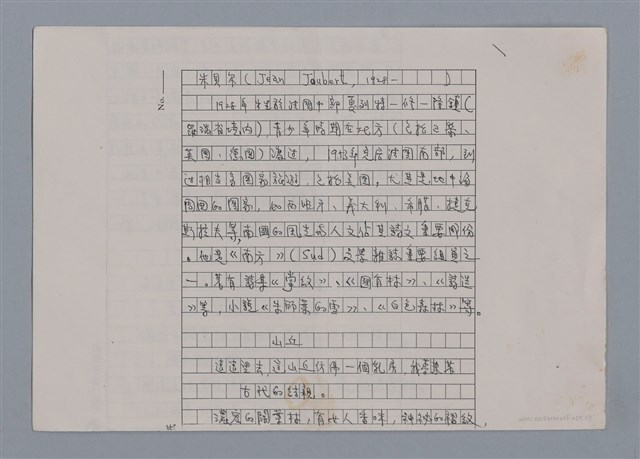 No.
朱貝尔(Jean Joubert, 1928- )
1928年生於法國中部夏列特-修-隆鎮(
羅瀛省境內),青少年時期在北方(包括巴黎、
英國、德國)渡過,1943年定居法國南部,到
過相當多國家旅遊,包括美國,尤其是地中海
周圍的國家,如西班牙、義大利、希腊、捷克
斯拉夫等,南國的風土與人文佔其詩文重要周份
。他是《南方》(Sud)文學雜誌重要組員之
一。著有詩集《掌紋》、《國有林》、《詩選
》等,小說《朱師葉的雪》、《白色森林》等。
山丘
遠遠望去,這山丘仿佛一個乳房,我夢見著
古代的結親。
濃密的闊葉林,有女人香味,神秘的褶紋,